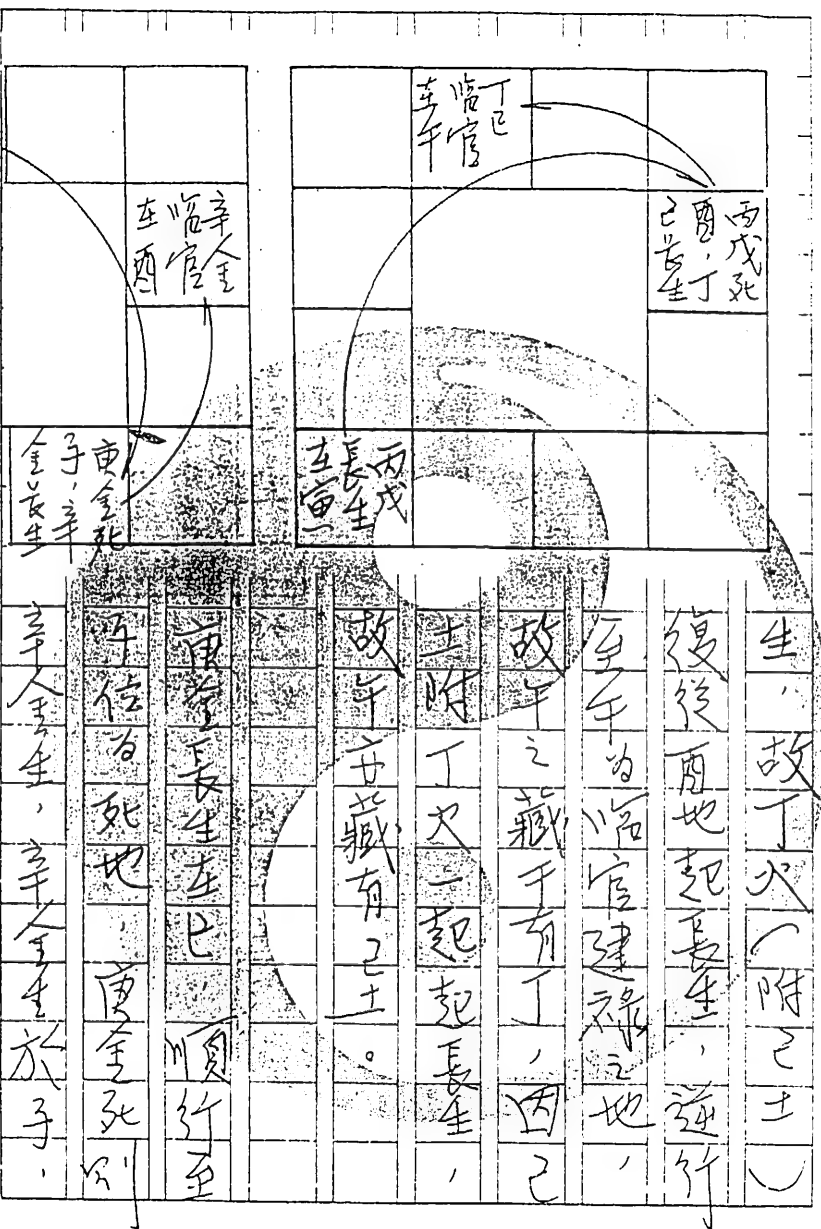 丁己
臨官
在午
丙戊死
酉,丁
己長生
丙戊
長生
在寅
辛金
臨官
在酉
庚金死
子,辛
金長生
生,故丁火(附己土)
復從酉地起長生,逆行
至午為臨官建祿之地,
故午之藏干有丁,因己
土附丁火一起起長生,
故午亦藏有己土。
庚金長生在巳,順行至
子位為死地,庚金死則
辛金生,辛金生於子,